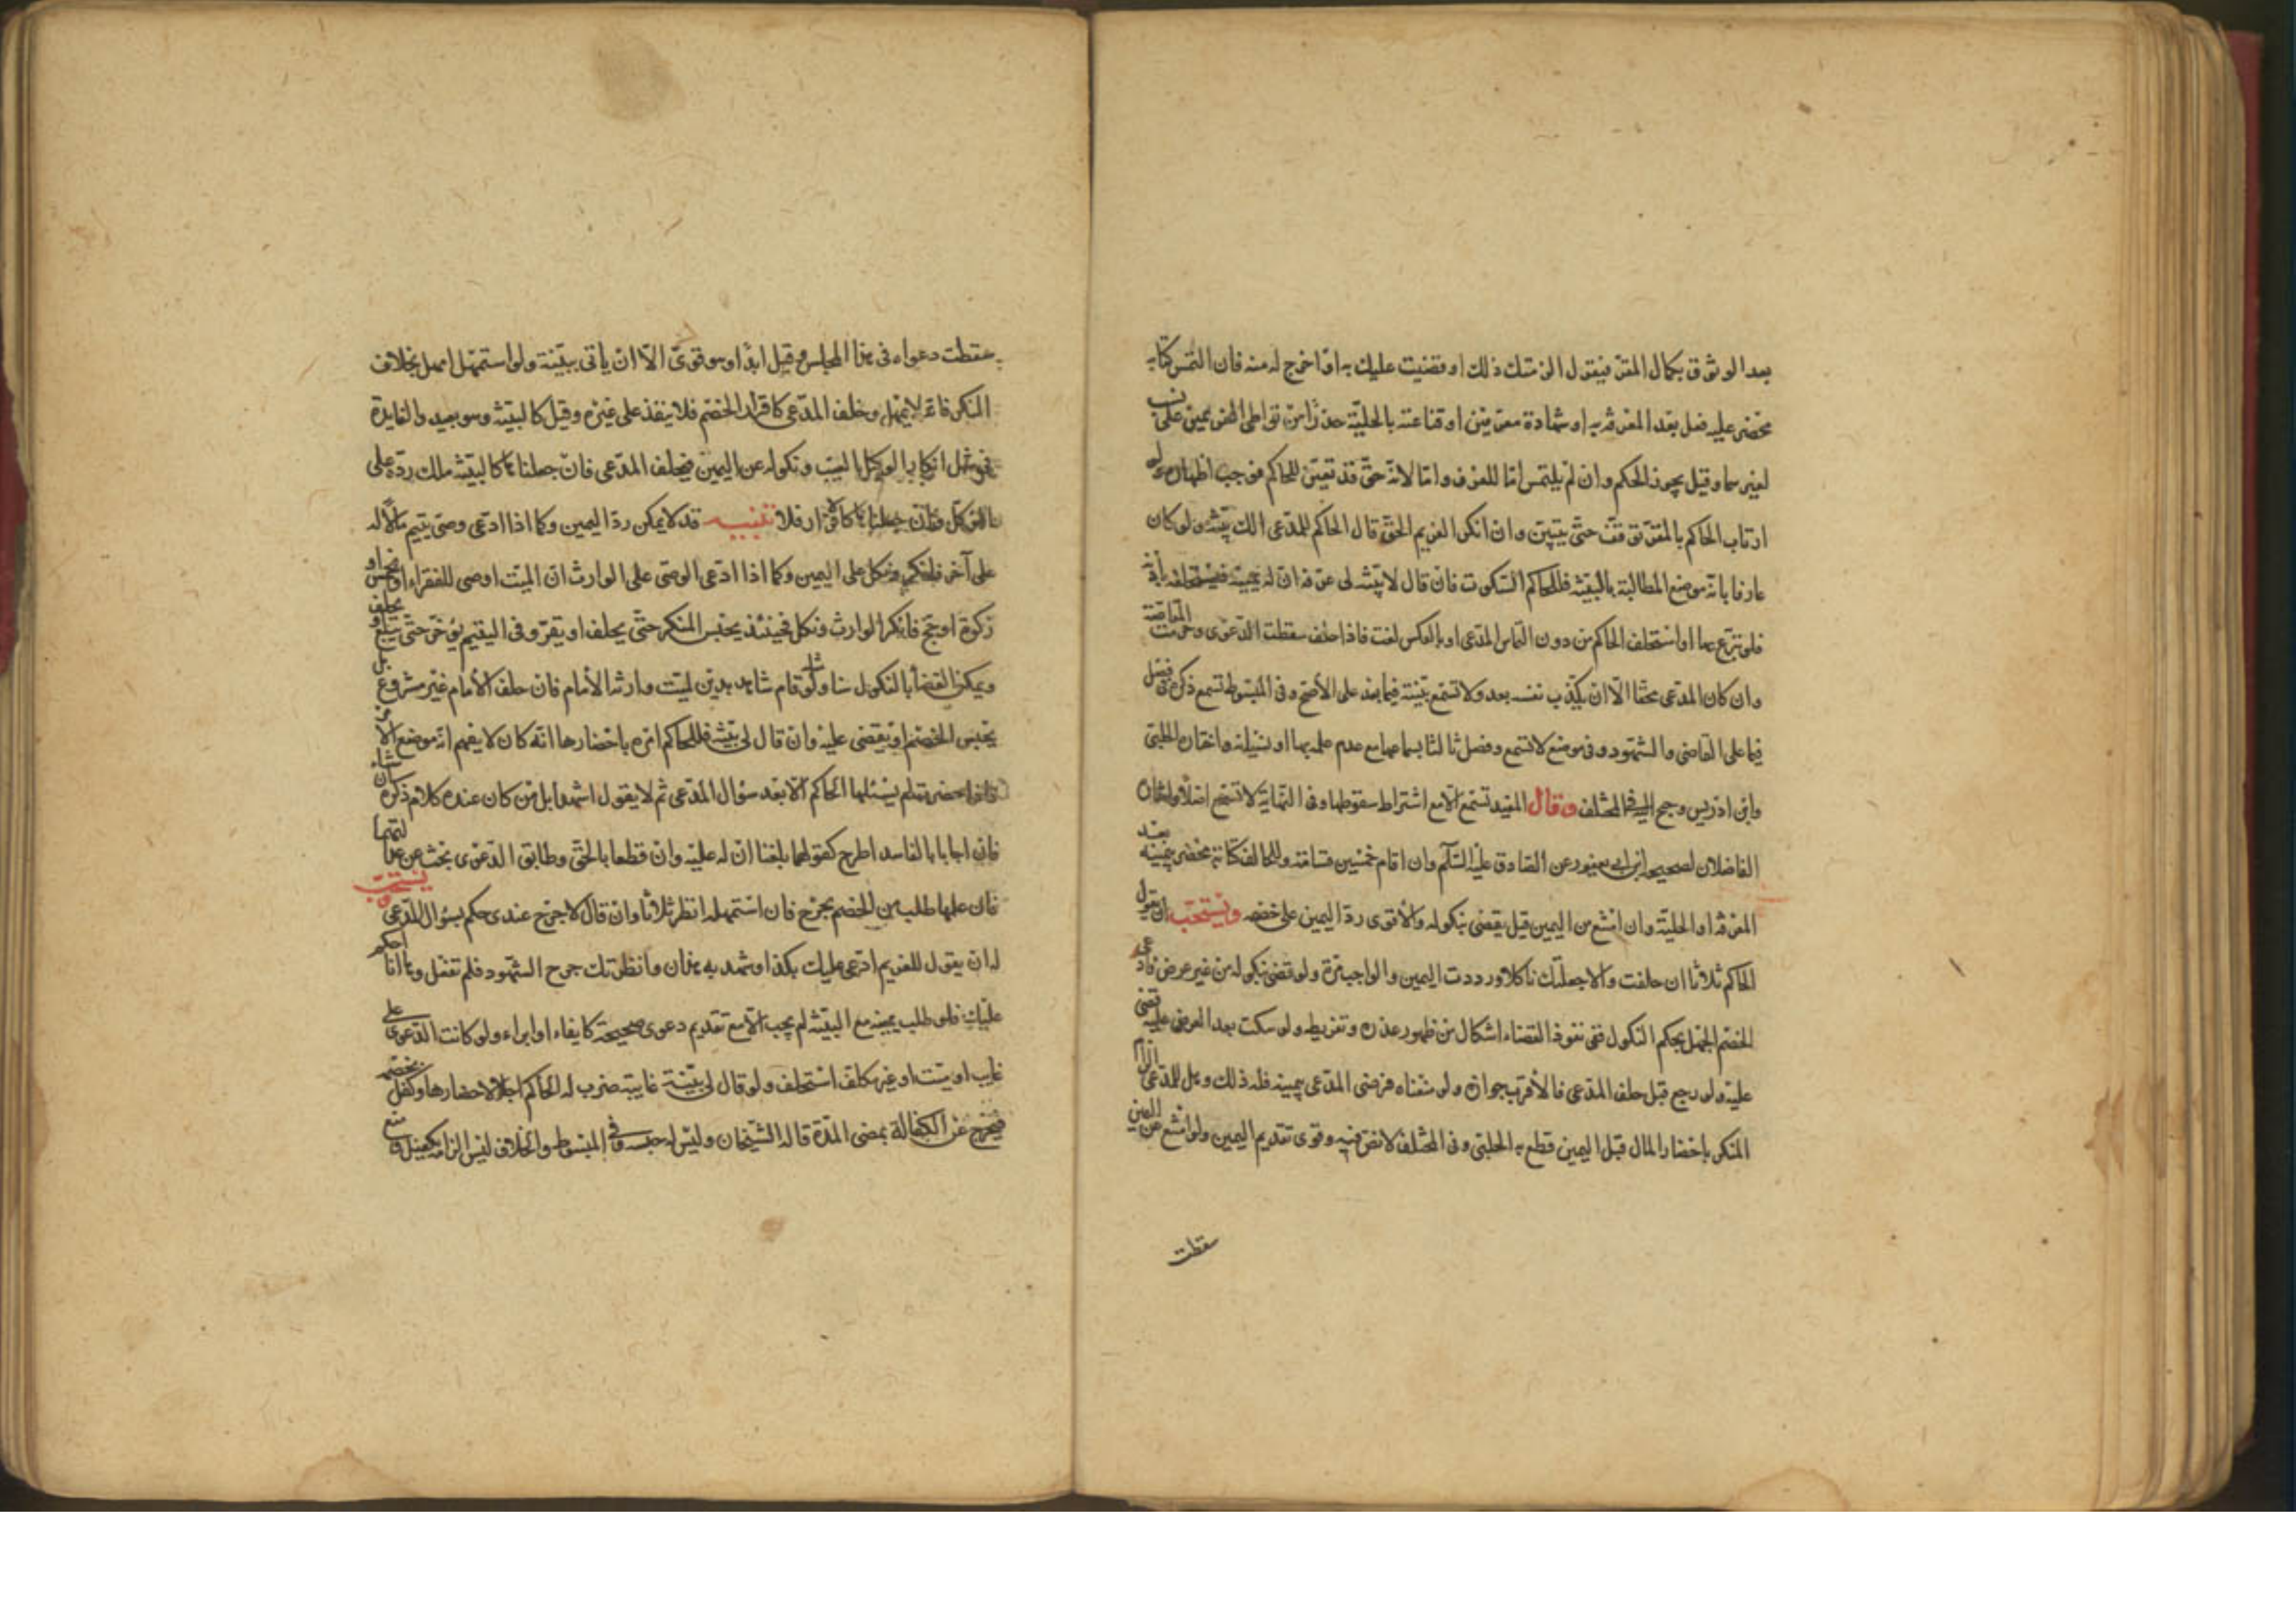 بعد الوثوق بكمال المقر فيقول الزمتك ذلك او قضيت عليك به او اخرج له منه فان التمس كتابه
محضر عليه فعل بعد المعرفة به او شهادة معرفين او قناعته بالحلية حذرا من تواطى الغريمين على نسب
لغيرهما وقيل يجوز الحكم وان لم يلتمس اما للعرف واما لانه حق قد تعين للحاكم فوجب اظهاره ولو
ارتاب الحاكم بالمقر توقف حتى يتبين وان انكر الغريم الحق قال الحاكم للمدعى الك بينة ولو كان
عارفا بانه موضع المطالبة بالبينة فللحاكم السكوت فان قال لا بينة لى عرفه ان له يمينه فيستحلفه باذنه
فلو تبرع بها او استحلف الحاكم من دون التماس المدعى او بالعكس لغت فاذا حلف سقطت الدعوى وحرمت المقاصة
وان كان المدعى محقا الا ان يكذب نفسه بعد ولا تسمع بينته فيما بعد على الاصح وفى المبسوط تسمع ذكره فى فصل
فيما على القاضى والشهود وفى موضع لا تسمع وفصل ثالثا بسماعها مع عدم علمه بها او نسيانه واختاره الحلبى
وابن ادريس وجنح اليه فى المختلف وقال المفيد تسمع الا مع اشتراط سقوطها وفى النهاية لا تسمع اصلا واختاره
الفاضلان لصحيحه ابن ابى يعفور عن الصادق عليه السلم وان اقام خمسين قسامة وللحالف كتابة محضر بيمينه بعد
المعرفة او الحلية وان امتنع من اليمين قيل يقضى بنكوله والاقوى رد اليمين على خصمه ويستحب ان يقول
الحاكم ثلاثا ان حلفت والا جعلتك ناكلا ورددت اليمين والواجب مرة ولو قضى بنكوله من غير عرض فادعى
الخصم الجهل بحكم النكول ففى نفوذ القضاء اشكال من ظهور عذره وتفريطه ولو سكت بعد العرض عليه قضى
عليه ولو رجع قبل حلف المدعى فالاقرب جوازه ولو منعناه فرضى المدعى بيمينه فله ذلك وهل للمدعى الزام
المنكر باحضار المال قبل اليمين قطع به الحلبى وفى المختلف لا نص فيه وقوى تقديم اليمين ولو امتنع من اليمين
سقطت
سقطت دعواه فى هذا المجلس وقيل ابدا وهو قوى الا ان ياتى ببينة ولو استمهل امهل بخلاف
المنكر فانه لا يمهل وحلف المدعى كاقرار الخصم فلا ينفذ على غيره وقيل كالبينة وهو بعيد والفايدة
فى مثل انكار الوكيل بالعيب ونكوله عن اليمين فيحلف المدعى فان جعلناها كالبينة ملك رده على
الموكل وان جعلناها كالاقرار فلا تنبيه قد لا يمكن رد اليمين وكما اذا ادعى وصى يتيم مالا له
على آخر فانكر ونكل على اليمين وكما اذا ادعى الوصى على الوارث ان الميت اوصى للفقراء او بخمس او
زكوة او حج فانكر الوارث ونكل فحينئذ يحبس المنكر حتى يحلف او يقر وفى اليتيم يؤخر حتى يبلغ ويحلف
ويمكن القضاء بالنكول هنا ولو قام شاهد بدين لميت وارثه الامام فان حلف الامام غير مشروع بل
يحبس الخصم او يقضى عليه وان قال لى بينة فللحاكم امره باحضارها انه كان لا يفهم انه موضع الا
حضرت لم يسئلها الحاكم الا بعد سؤال المدعى ثم لا يقول اشهدا بل من كان عنده كلام ذكره
فان اجابا بالفاسد اطرح كقولهما بلغنا ان له عليه وان قطعا بالحق وطابق الدعوى بحث عن عدالتهما
فان علمها طلب من الخصم بجرح فان استمهله انظر ثلاثا وان قال لا جرح عندى حكم بسؤال المدعى ويستحب
له ان يقول للغريم ادعى عليك بكذا وشهد به هذان وانظرتك جرح الشهود فلم تفعل وها انا احكم
عليك فلو طلب يمينه مع البينة لم يجب الا مع تقديم دعوى صحيحة كايفاء او ابراء ولو كانت الدعوى على
غايب او ميت او غير مكلف استحلف ولو قال لى بينة غايبة ضرب له الحاكم اجلا لاحضارها وكفل بخصمه
فيخرج عن الكفالة بمضى المدة قاله الشيخان وليس له حبسه وفى المبسوط والخلاف ليس الزامه بكفيل ومنع